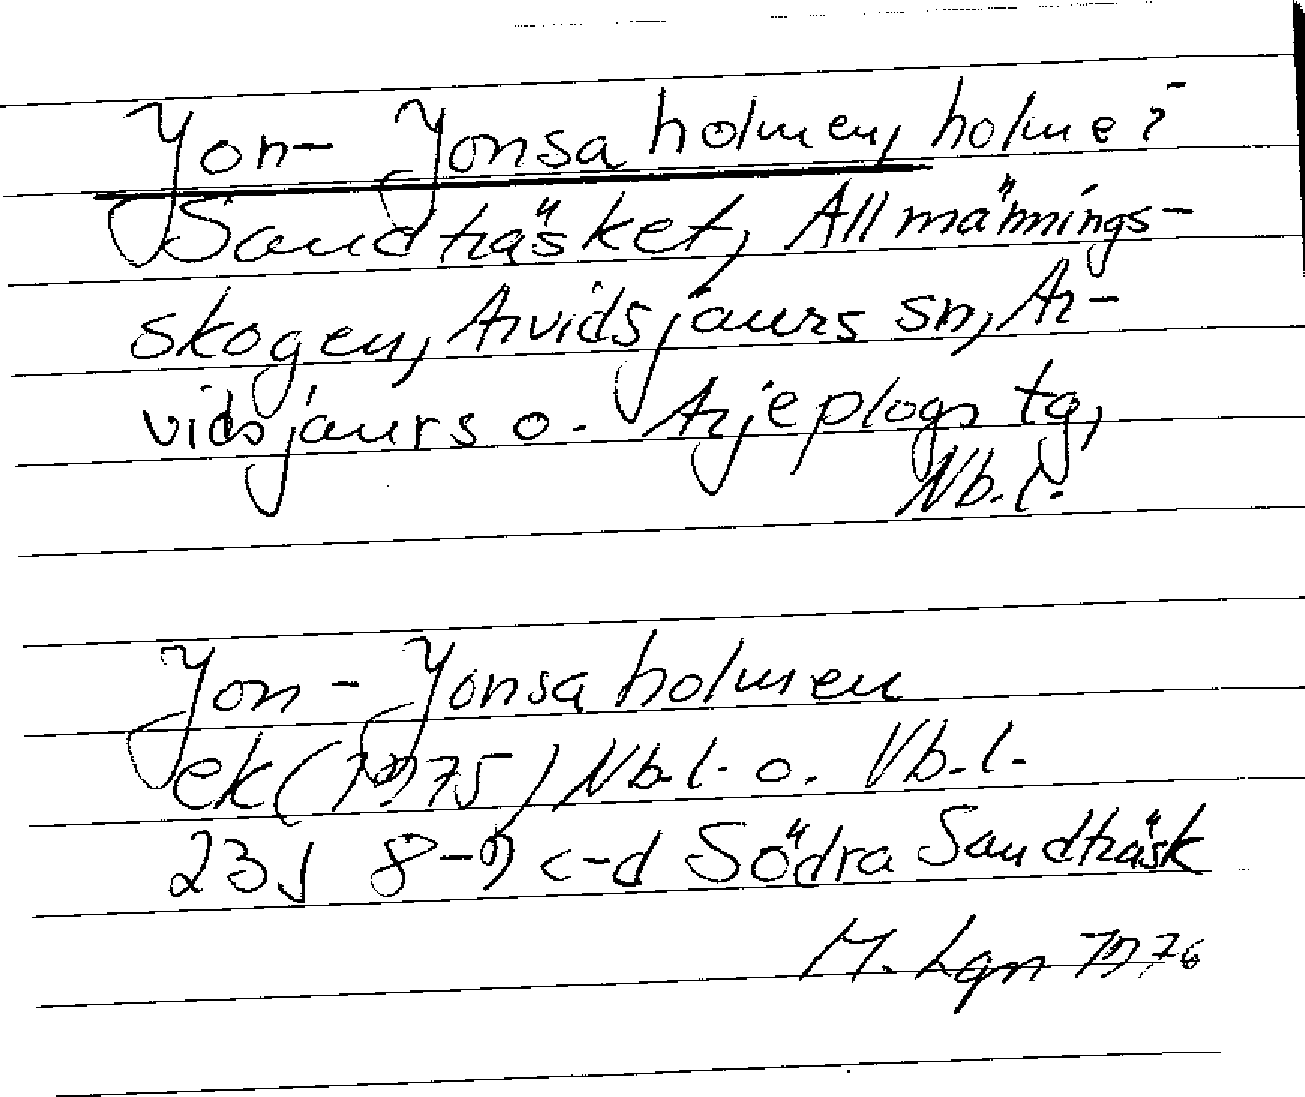 Jon-Jonsaholmen, holme i
Sandträsket, Allmännings-
skogen, Arvidsjaurs sn, Ar-
vidsjaurs o. Arjeplogs tg,
Nb.l.
Jon-Jonsaholmen
ek (1975) Nb.l. o. Vb.l.
23J 8-9 c-d Södra Sandträsk
M. Lgn 1976